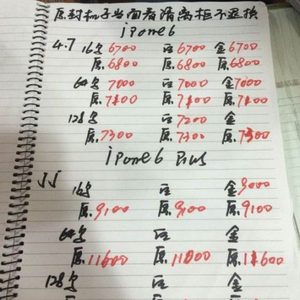 原封机子当面看清离柜不退换
ipone6
4.7 16G 6700 白6700 金6700
原.6800 原6800 原6800
64G 7000 白7000 金7000
原.7100 原7100 原7100
128G 白7200 金
原.7300 原.7300 原.7300
ipone6 plus
16G 白 金9000
原.9100 原.9100 原.9100
64G 白 金
原.11600 原. 原.11600
128G 白 金